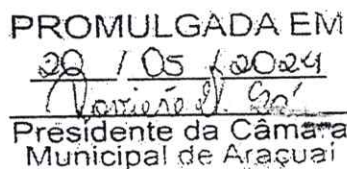 PROMULGADA EM
28 / 05 / 2024
Presidente da Câmara
Municipal de Araçuaí